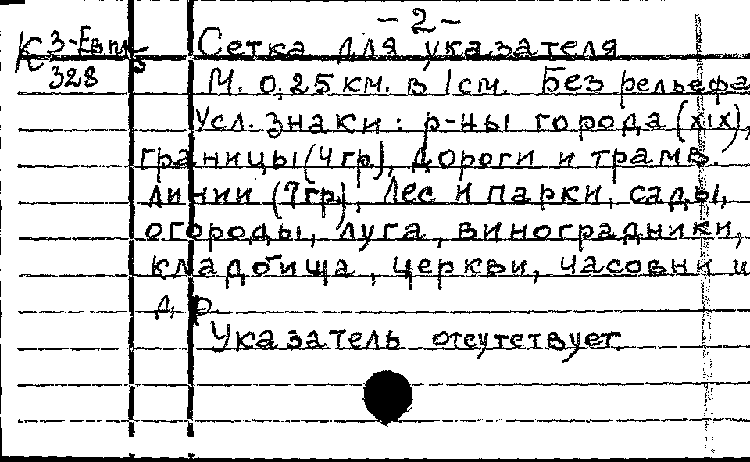 – 2 –
К 3-Евпл
5
Сетка для указателя
328
М. 0,25 км. в 1 см. Без рельефа
Усл. знаки: р-ны города (XIX),
границы (4 гр), дороги и трамв.
линии (7 гр), лес и парки, сады,
огороды, луга, виноградники,
кладбища, церкви, часовни и
др.
Указатель отсутствует.